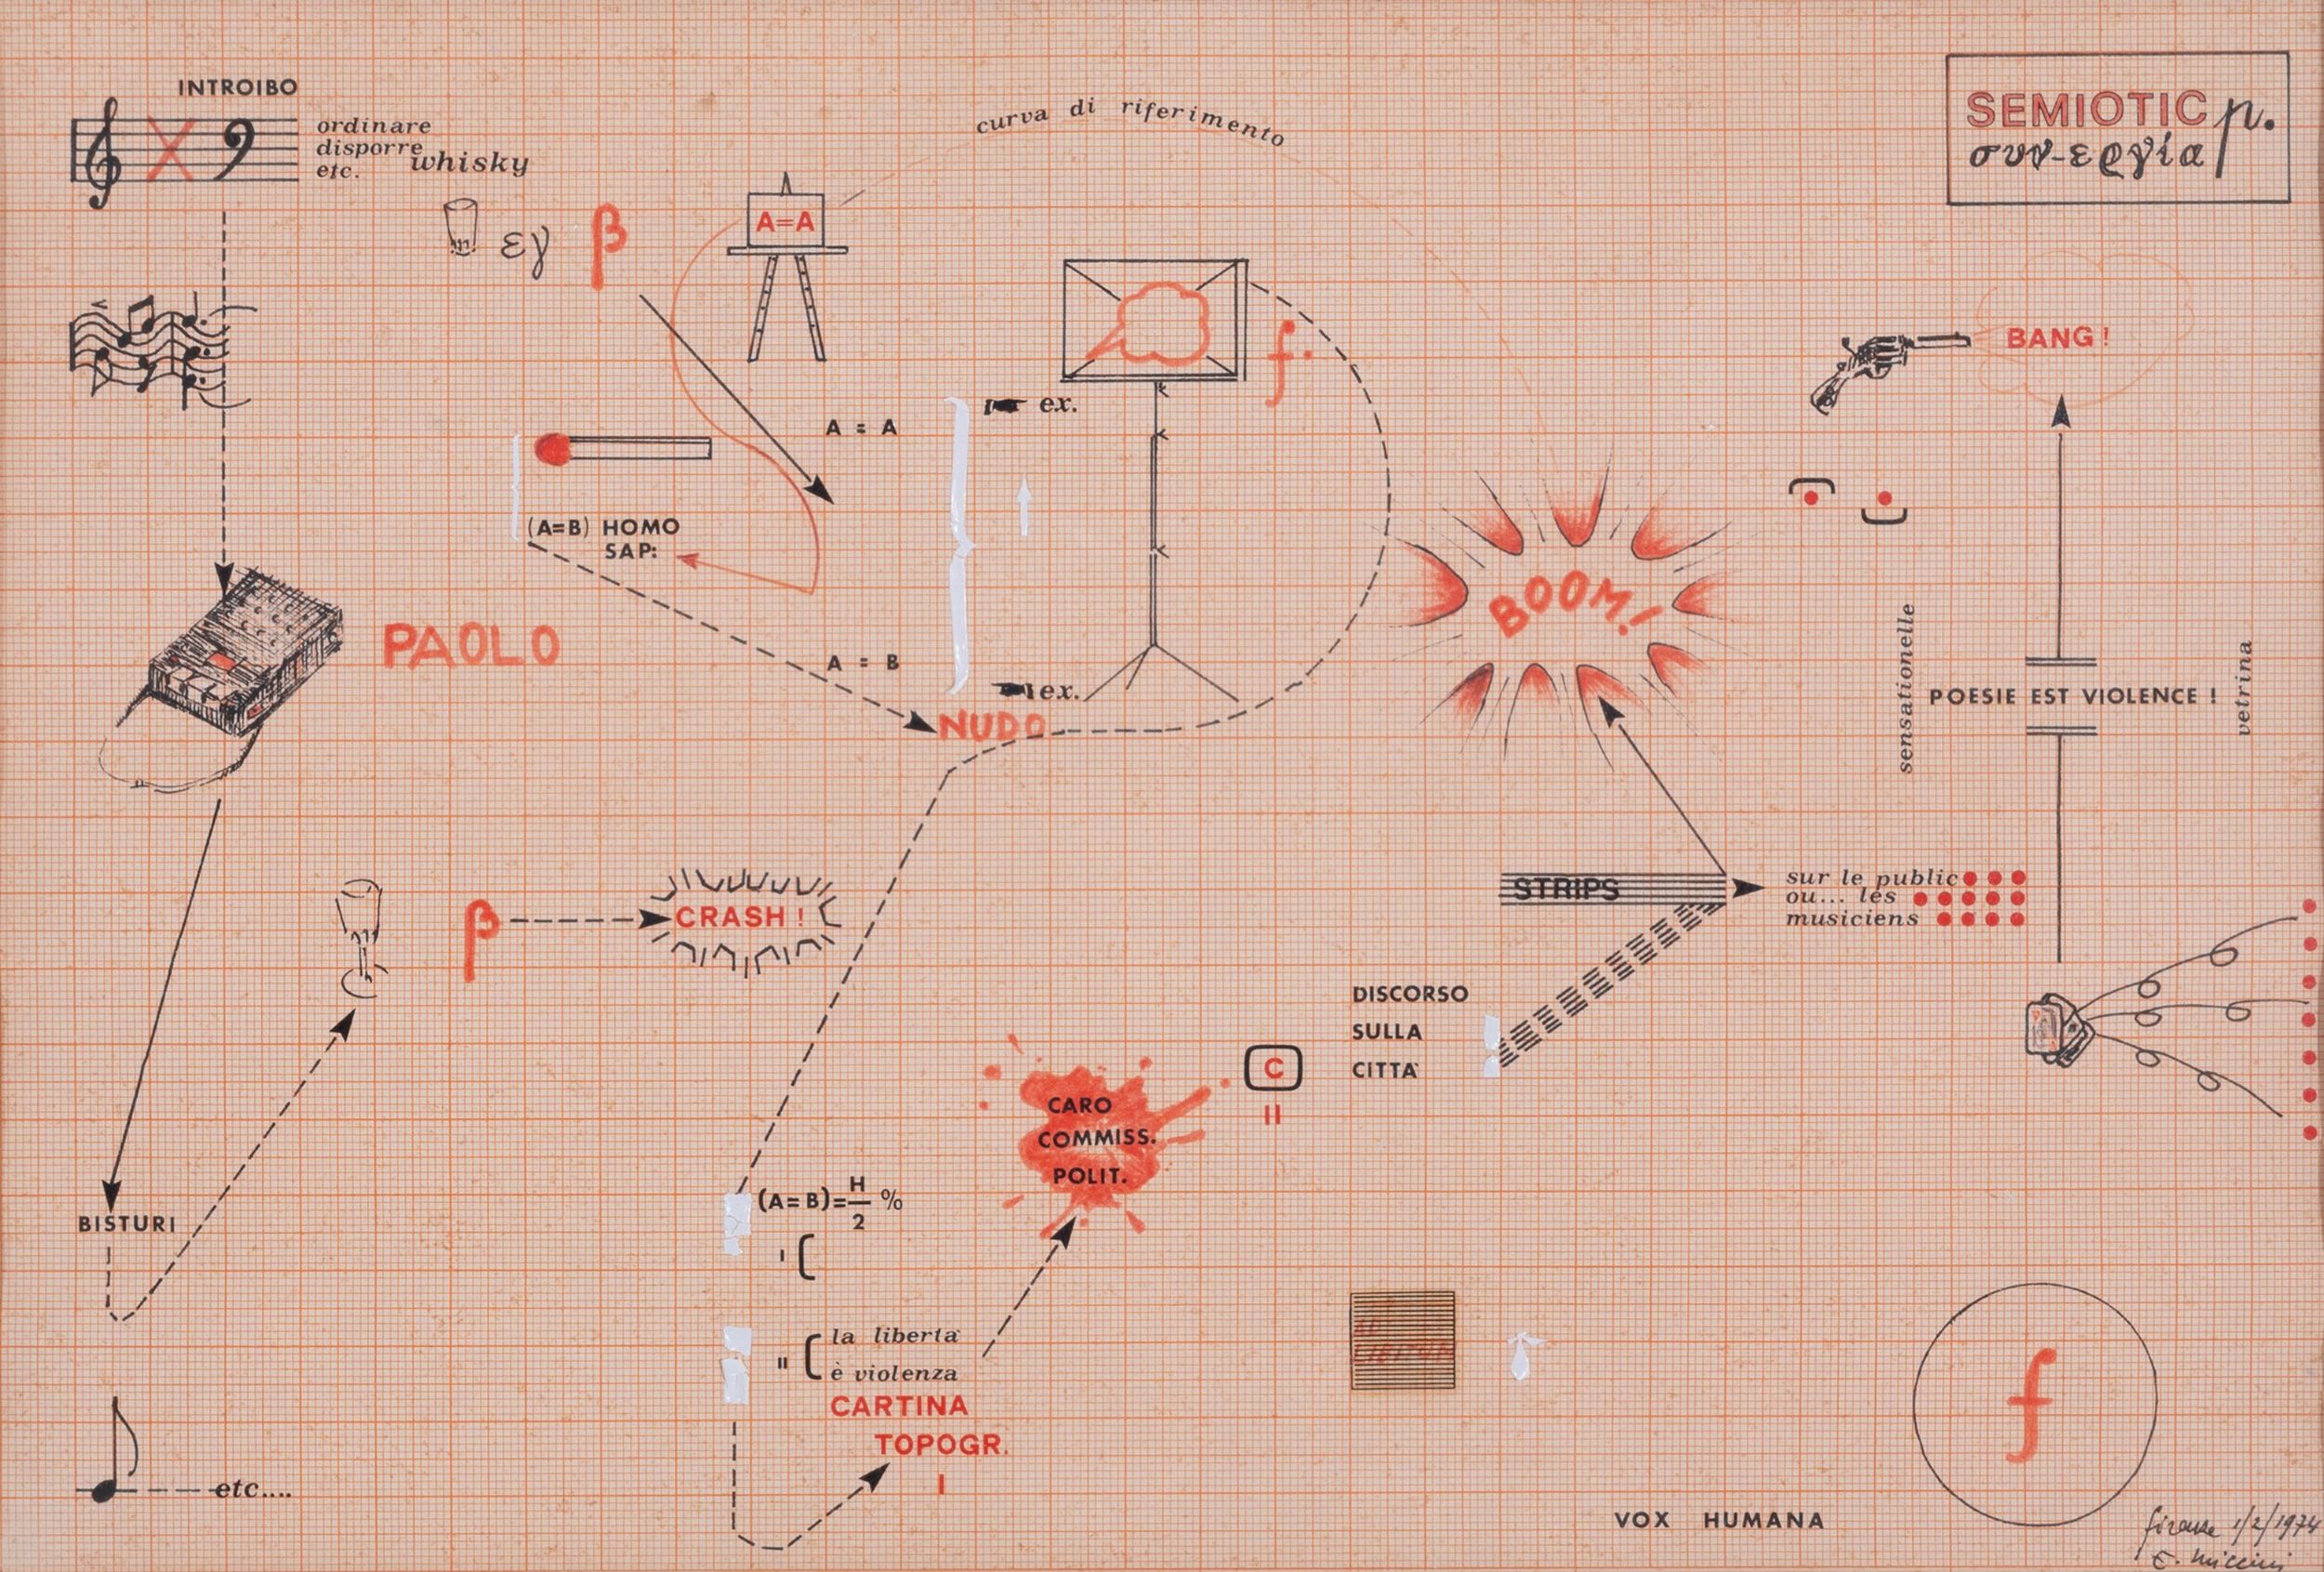 INTROIBO
ordinare
disporre
etc.
whisky
εγ
β
A=A
curva di riferimento
SEMIOTIC p.
συν-εργία
f.
BANG!
ex.
A = A
(A=B) HOMO
SAP:
PAOLO
A = B
ex.
NUDO
BOOM!
sensationelle
POESIE EST VIOLENCE !
vetrina
β
CRASH !
STRIPS
sur le public
ou... les
musiciens
DISCORSO
SULLA
CITTA'
C
II
CARO
COMMISS.
POLIT.
BISTURI
(A=B)=H/2 %
I (
II (
la liberta'
è violenza
CARTINA
TOPOGR.
I
AD
f
etc....
VOX HUMANA
firenze 1/2/1974
E. Miccini